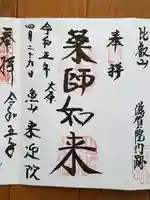 比叡山
滋賀院門跡
奉拝
薬師如来
令和五年 大原
四月二十九日 魚山 来迎院
奉拝 令和五年